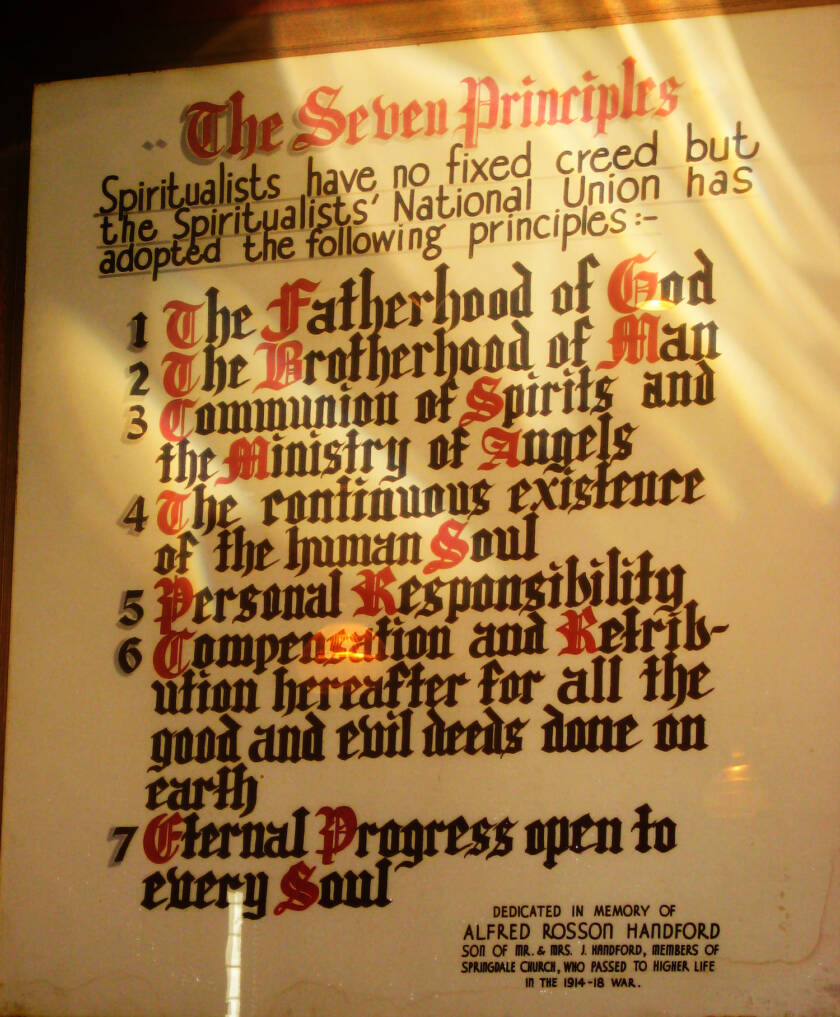 The Seven Principles
Spiritualists have no fixed creed but
the Spiritualists' National Union has
adopted the following principles:-
1 The Fatherhood of God
2 The Brotherhood of Man
3 Communion of Spirits and
the Ministry of Angels
4 The continuous existence
of the human Soul
5 Personal Responsibility
6 Compensation and Retrib-
ution hereafter for all the
good and evil deeds done on
earth
7 Eternal Progress open to
every Soul
DEDICATED IN MEMORY OF
ALFRED ROSSON HANDFORD
SON OF MR. & MRS. J. HANDFORD, MEMBERS OF
SPRINGDALE CHURCH, WHO PASSED TO HIGHER LIFE
IN THE 1914-18 WAR.